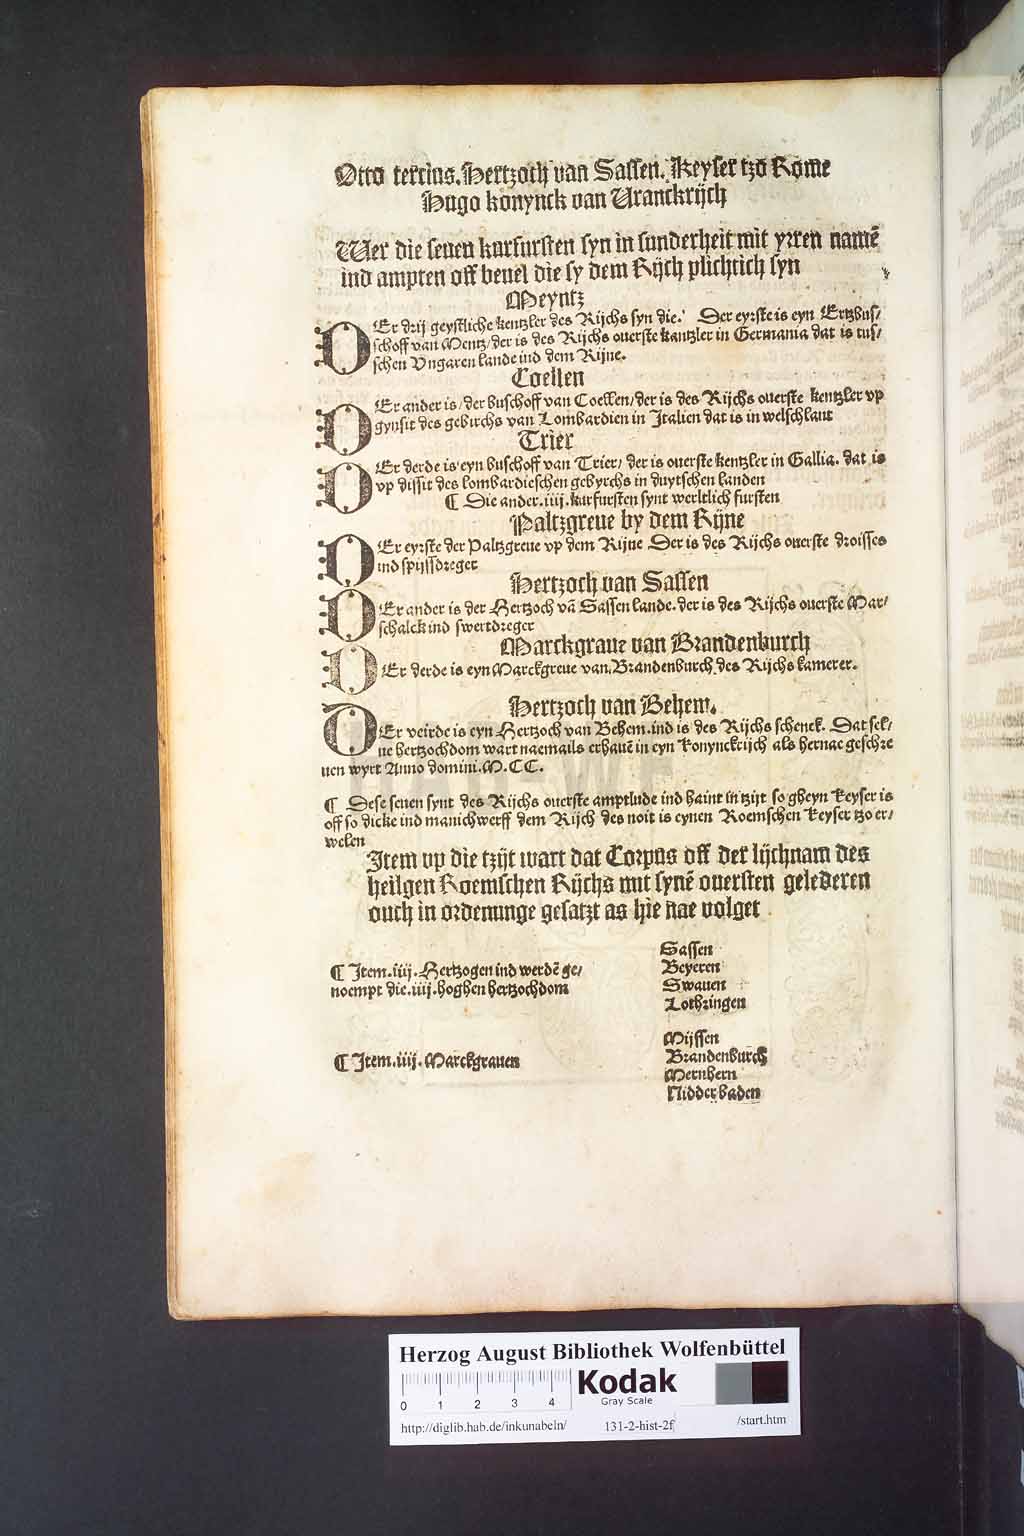 Otto tertius. Hertzoch van Sassen. Keyser tzo Rome
Hugo konynck van Vranckrijch
Wer die seuen kurfursten syn in sunderheit mit yrren namē
ind ampten off beuel die sy dem Rijch plichtich syn
Meyntz
DEr drij geystliche kentzler des Rijchs syn die. Der eyrste is eyn Ertzbus/
schoff van Mentz/ der is des Rijchs ouerste kantzler in Germania dat is tus/
schen Vngaren lande ind dem Rijne.
Coellen
DEr ander is/ der buschoff van Coellen/ der is des Rijchs ouerste kentzler vp
gynsit des gebirchs van Lombardien in Italien dat is in welschlant
Trier
DEr derde is eyn buschoff van Trier/ der is ouerste kentzler in Gallia. dat is
vp dissit des lombardieschen gebyrchs in duytschen landen
¶ Die ander .iiij. kurfursten synt werltlich fursten
Paltzgreue by dem Rijne
DEr eyrste der Paltzgreue vp dem Rijne Der is des Rijchs ouerste droisses
ind spijssdreger
Hertzoch van Sassen
DEr ander is der Hertzoch vā Sassen lande. der is des Rijchs ouerste Mar/
schalck ind swertdreger
Marckgraue van Brandenburch
DEr derde is eyn Marckgreue van Brandenburch des Rijchs kamerer.
Hertzoch van Behem.
DEr veirde is eyn Hertzoch van Behem. ind is des Rijchs schenck. Dat sel/
ue hertzochdom wart naemails erhauē in eyn konynckrijch als hernae geschre
uen wyrt Anno domini. M.CC.
¶ Dese seuen synt des Rijchs ouerste amptlude ind haint in tzijt so gheyn keyser is
off so dicke ind manichwerff dem Rijch des noit is eynen Roemschen keyser tzo er/
welen
Item vp die tzijt wart dat Corpus off der lijchnam des
heilgen Roemschen Rijchs mit synē ouersten gelederen
ouch in ordenunge gesatzt as hie nae volget
Sassen
¶ Item .iiij. Hertzogen ind werdē ge/
Beyeren
noempt die .iiij. hoghen hertzochdom
Swauen
Lothringen
Mijssen
¶ Item .iiij. Marckgrauen
Brandenburch
Mernhern
Nidderbaden
Herzog August Bibliothek Wolfenbüttel
Kodak
Gray Scale
0 1 2 3 4
http://diglib.hab.de/inkunabeln/ 131-2-hist-2f /start.htm